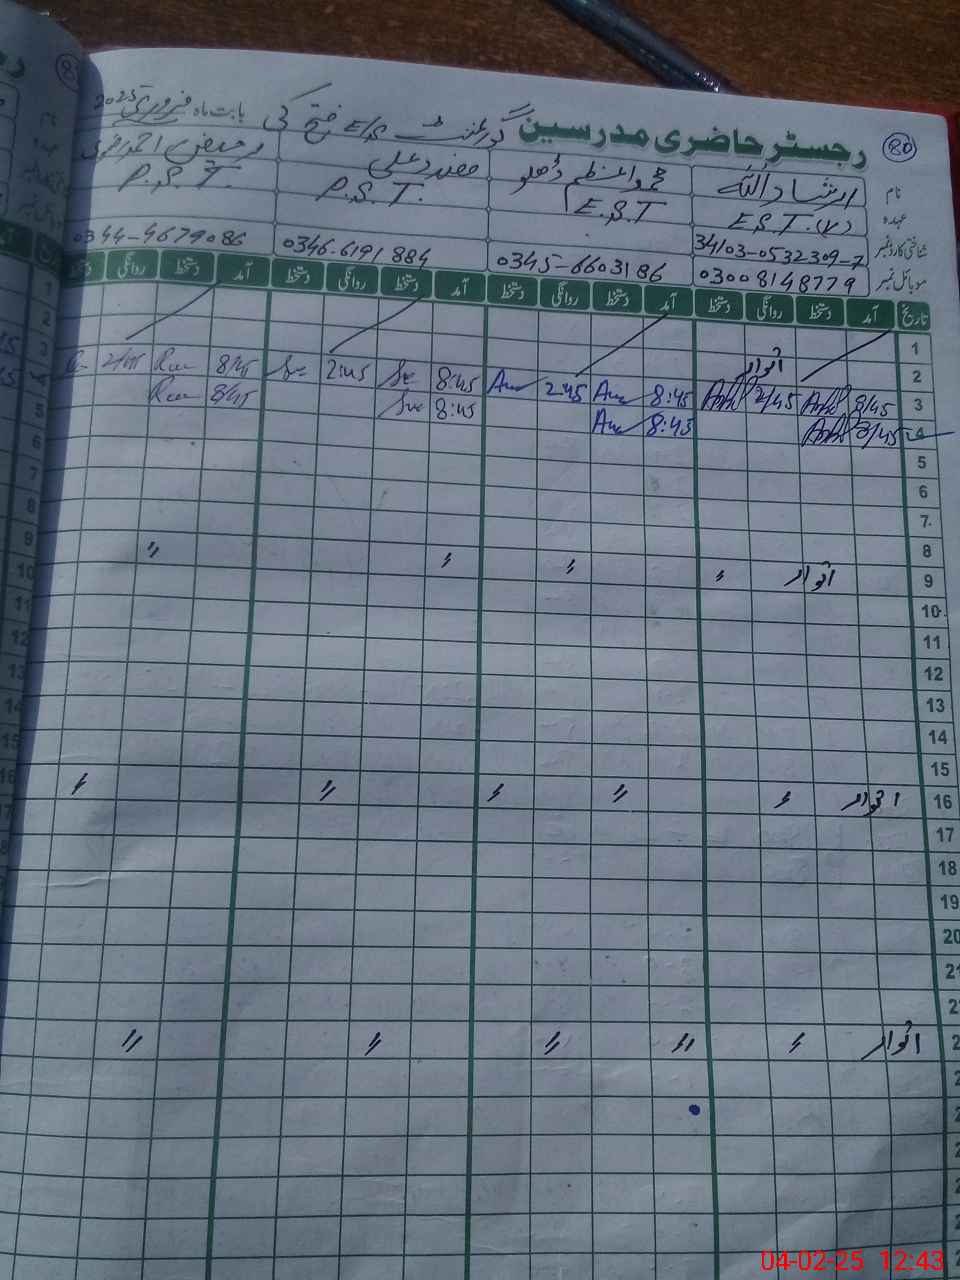 80
رجسٹر حاضری مدرسین گورنمنٹ E/S فتح کی بابت ماہ فروری 2025
نام ارشاد اللہ محمد اعظم ڈھلو صفدر علی
عہدہ E.S.T.(V) E.S.T P.S.T. P.S.T.
شناختی کارڈ نمبر 34103-0532309-7
موبائل نمبر 03008148779 0345-6603186 0346-6191884 0344-4679086
تاریخ آمد دستخط روانگی دستخط آمد دستخط روانگی دستخط آمد دستخط روانگی دستخط آمد دستخط روانگی
1
2 اتوار
3 8/45 2/45 8:45 2:45 8:45 2:45 8/45 2/45
4 8/45 8:45 8:45 8/45
5
6
7
8
9 اتوار 〃 〃 〃 〃
10
11
12
13
14
15
16 اتوار 〃 〃 〃 〃 〃
17
18
19
20
21
2
2 اتوار 〃 〃 〃 〃 〃
2
2
2
2
2
04-02-25 12:43